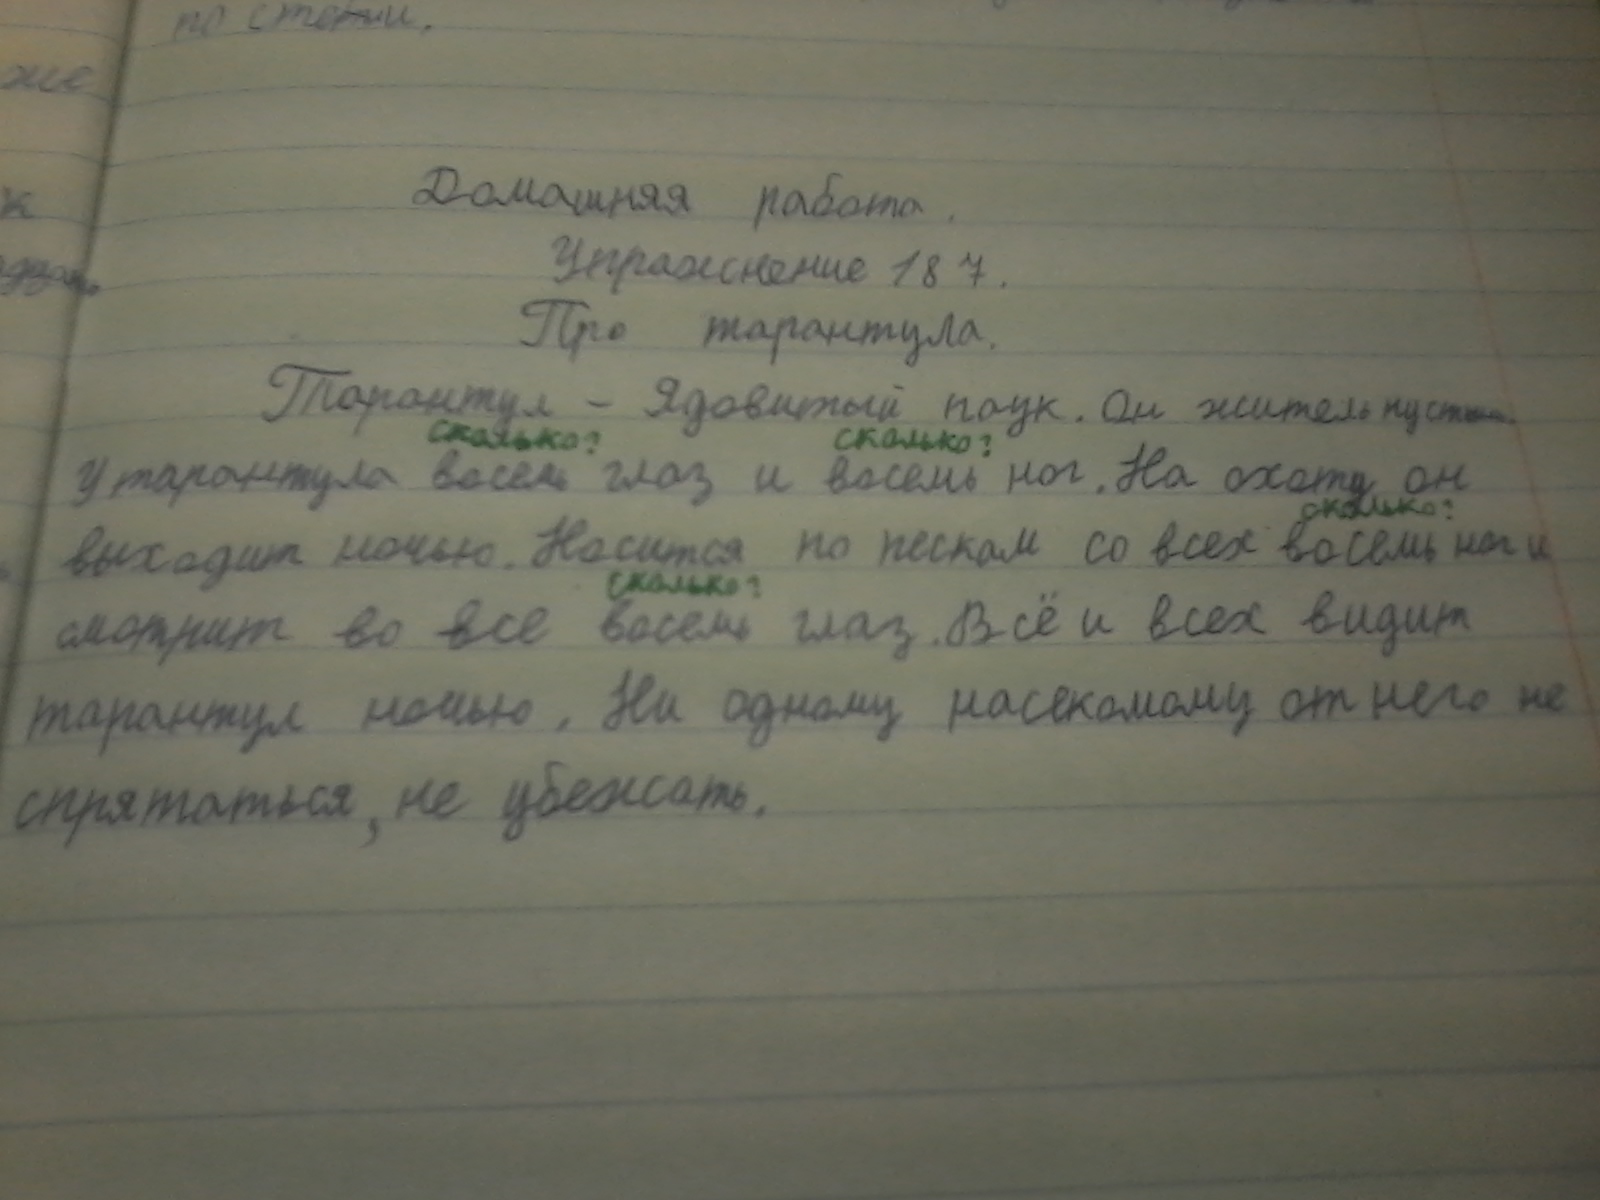 же
к
Домашняя работа.
Упражнение 187.
Про тарантула.
Тарантул – Ядовитый паук. Он житель пустыни.
сколько? сколько?
У тарантула восемь глаз и восемь ног. На охоту он
сколько?
выходит ночью. Носится по пескам со всех восемь ног и
сколько?
смотрит во все восемь глаз. Всё и всех видит
тарантул ночью. Ни одному насекомому от него не
спрятаться, не убежать.